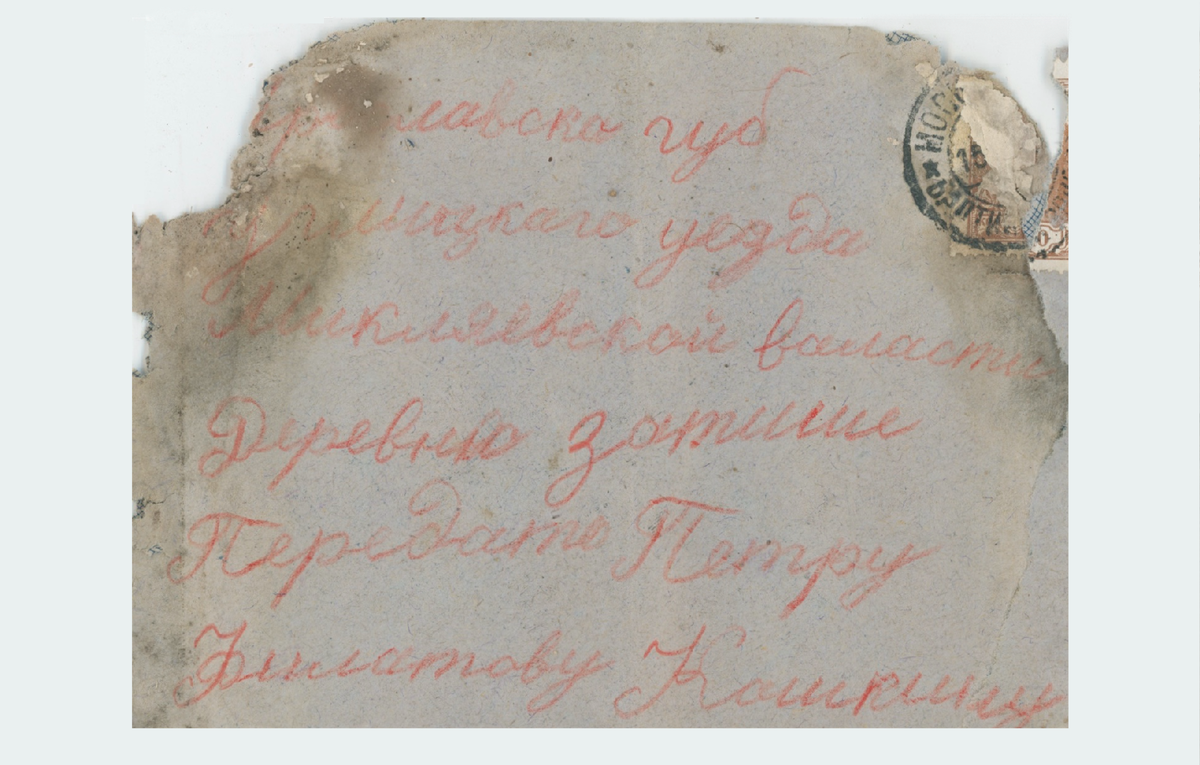 губ
уезда
Микляевской валасти
Деревню затише
Передать Петру
Филатову Кошкину